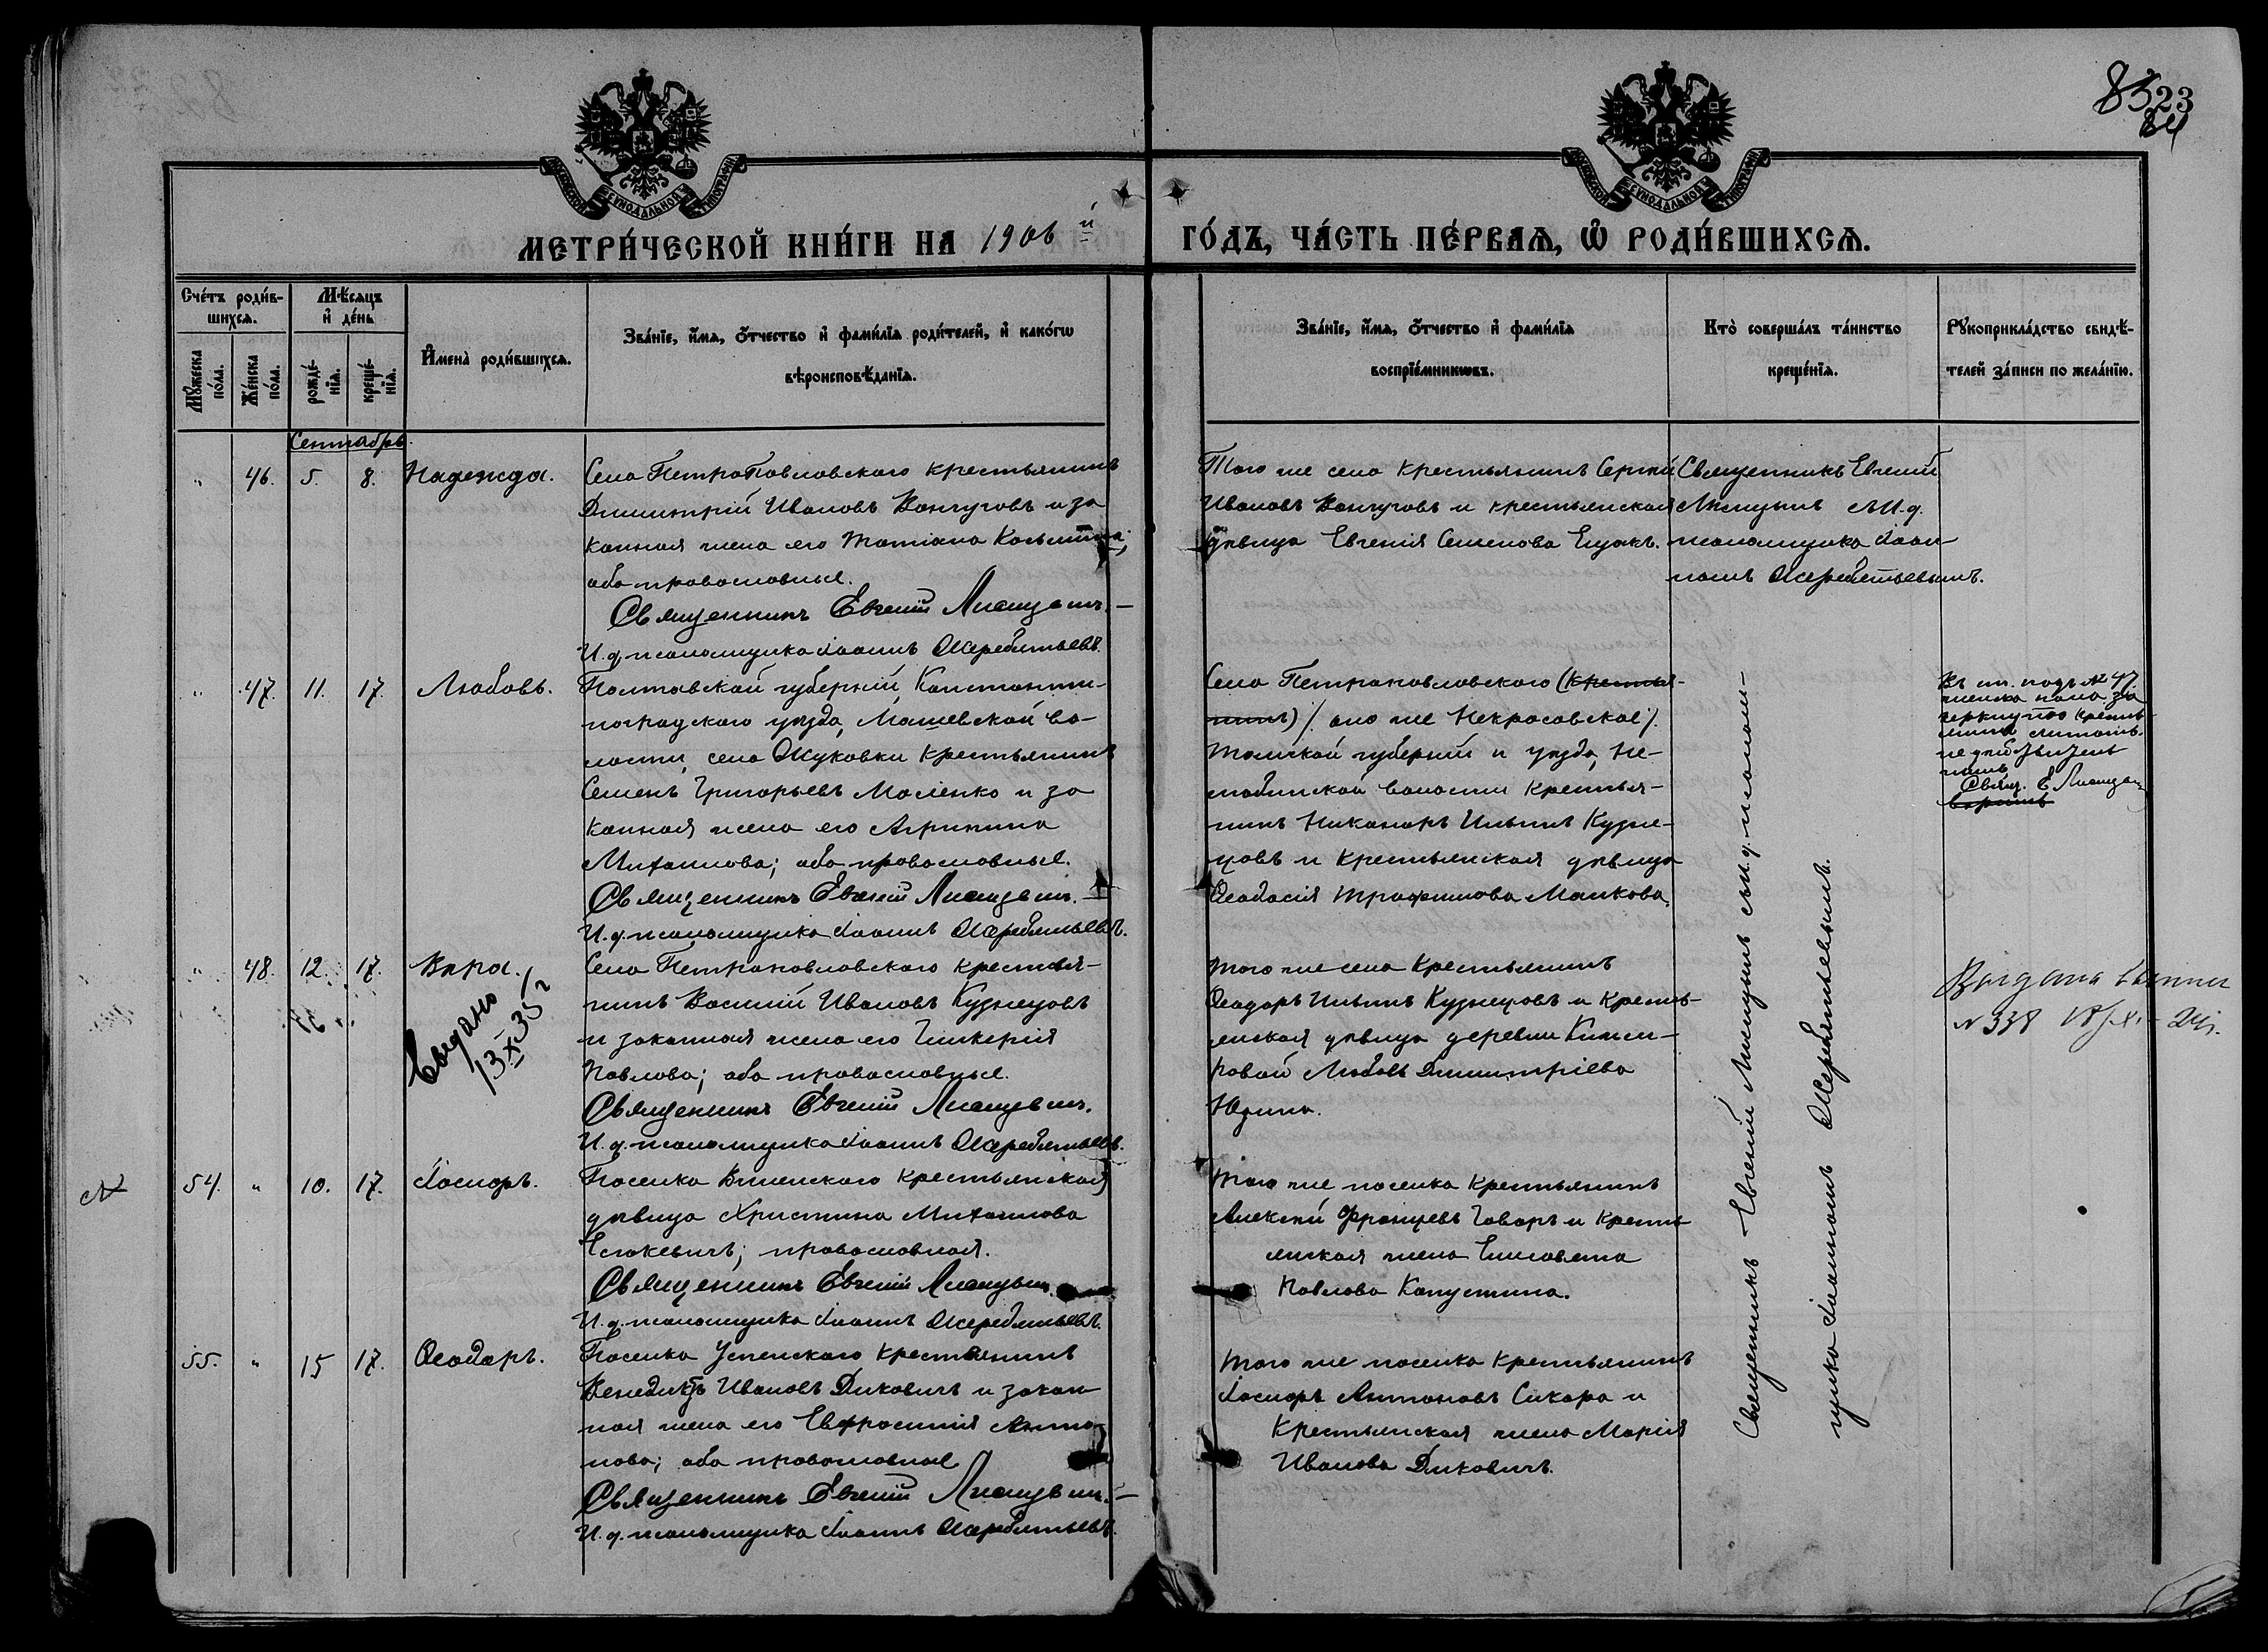 8523
84
МЕТРИ́ЧЕСКОЙ КНИ́ГИ НА 1906 й
ГО́ДЪ, ЧА́СТЬ ПЕ́РВАѦ, Ѡ҆ РОДИ́ВШИХСѦ.
Сче́тъ роди́в-
шихсѧ.
Мѣ́сѧцъ
и҆ де́нь
Мꙋ́жеска
по́ла.
Же́нска
по́ла.
рожде́-
нїѧ.
креще́-
нїѧ.
И҆мена̀ роди́вшихсѧ.
Зва́нїе, и҆́мѧ, о҆́тчество и҆ фами́лїѧ роди́телей, и҆ како́гѡ
вѣроисповѣ́данїѧ.
Зва́нїе, и҆́мѧ, о҆́тчество и҆ фами́лїѧ
воспрїе́мникѡвъ.
Кто̀ соверша́лъ та́инство
креще́нїѧ.
Рꙋкоприкла́дство свидѣ́-
телей за́писи по жела́нїю.
Сентябрь.
" 46. 5. 8. Надежда.
Села Петропавловскаго крестьянинъ
Димитрій Ивановъ Ванчуговъ и за
конная жена его Татіана Косьмина;
оба православные.
Священникъ Евгеній Лисицынъ.
И. д. псаломщика Іоаннъ Жеребятьевъ.
Того же села крестьянинъ Сергѣй
Ивановъ Ванчуговъ и крестьянская
дѣвица Евгенія Семенова
Священникъ Евгеній
Лисицынъ съ И. д.
псаломщика Іоан-
номъ Жеребятьевымъ.
" 47. 11. 17. Любовь.
Полтавской губерніи, Константи-
ноградскаго уѣзда, Машевской во-
лости, села Жуковки крестьянинъ
Семенъ Григорьевъ Маленко и за
конная жена его Агрипина
Михаилова; оба православные.
Священникъ Евгеній Лисицынъ.
И. д. псаломщика Іоаннъ Жеребятьевъ.
Села Петропавловскаго (крестья-
нинъ) /оно же Некрасовское/.
Томской губерніи и уѣзда, Не-
любинской волости крестья-
нинъ Никаноръ Ильинъ Кузне-
цовъ и крестьянская дѣвица
Ѳеодосія Трофимова Малкова.
Въ ст. подъ № 47
женска пола за
черкнутое крестья-
нинъ считать
не дѣйствитель
нымъ
Свящ. Е. Лисицын
" 48. 12. 17. Вѣра.
Выдано
13 X 35 г
Села Петропавловскаго крестья-
нинъ Василій Ивановъ Кузнецовъ
и законная жена его Гликерія
Павлова; оба православные.
Священникъ Евгеній Лисицынъ.
И. д. псаломщика Іоаннъ Жеребятьевъ.
Того же села крестьянинъ
Ѳеодоръ Ильинъ Кузнецовъ и кресть-
янская дѣвица деревни
Любовь Димитріева
Юдина.
Выдана
N 338
54. " 10. 17. Іосифъ.
Поселка крестьянская
дѣвица Христина Михаилова
православная.
Священникъ Евгеній Лисицынъ.
И. д. псаломщика Іоаннъ Жеребятьевъ.
Того же поселка крестьянинъ
Алексѣй Францевъ Говаръ и кресть
янская жена Елисавета
Павлова Капустина.
55. " 15 17. Ѳеодоръ.
Поселка Успенскаго крестьянинъ
Венедиктъ Ивановъ Диковичъ и закон
ная жена его Евфросинія Анто-
нова; оба православные
Священникъ Евгеній Лисицынъ.
И. д. псаломщика Іоаннъ Жеребятьевъ.
Того же поселка крестьянинъ
Іосифъ Антоновъ Сикора и
крестьянская жена Марія
Иванова Диковичъ.
Священникъ Евгеній Лисицынъ съ и. д. псалом-
щика Іоанномъ Жеребятьевымъ.